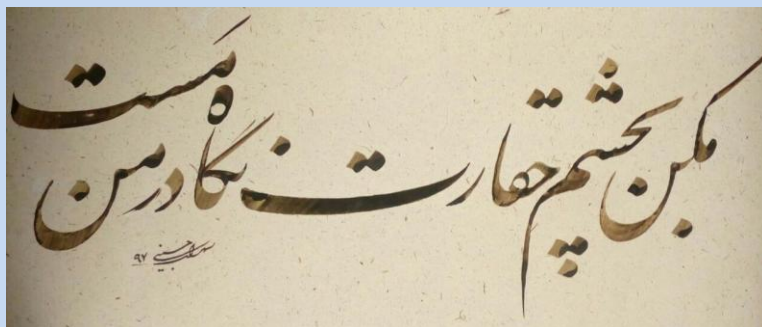 مکن بچشم حقارت نگاه در من مست
۹۷